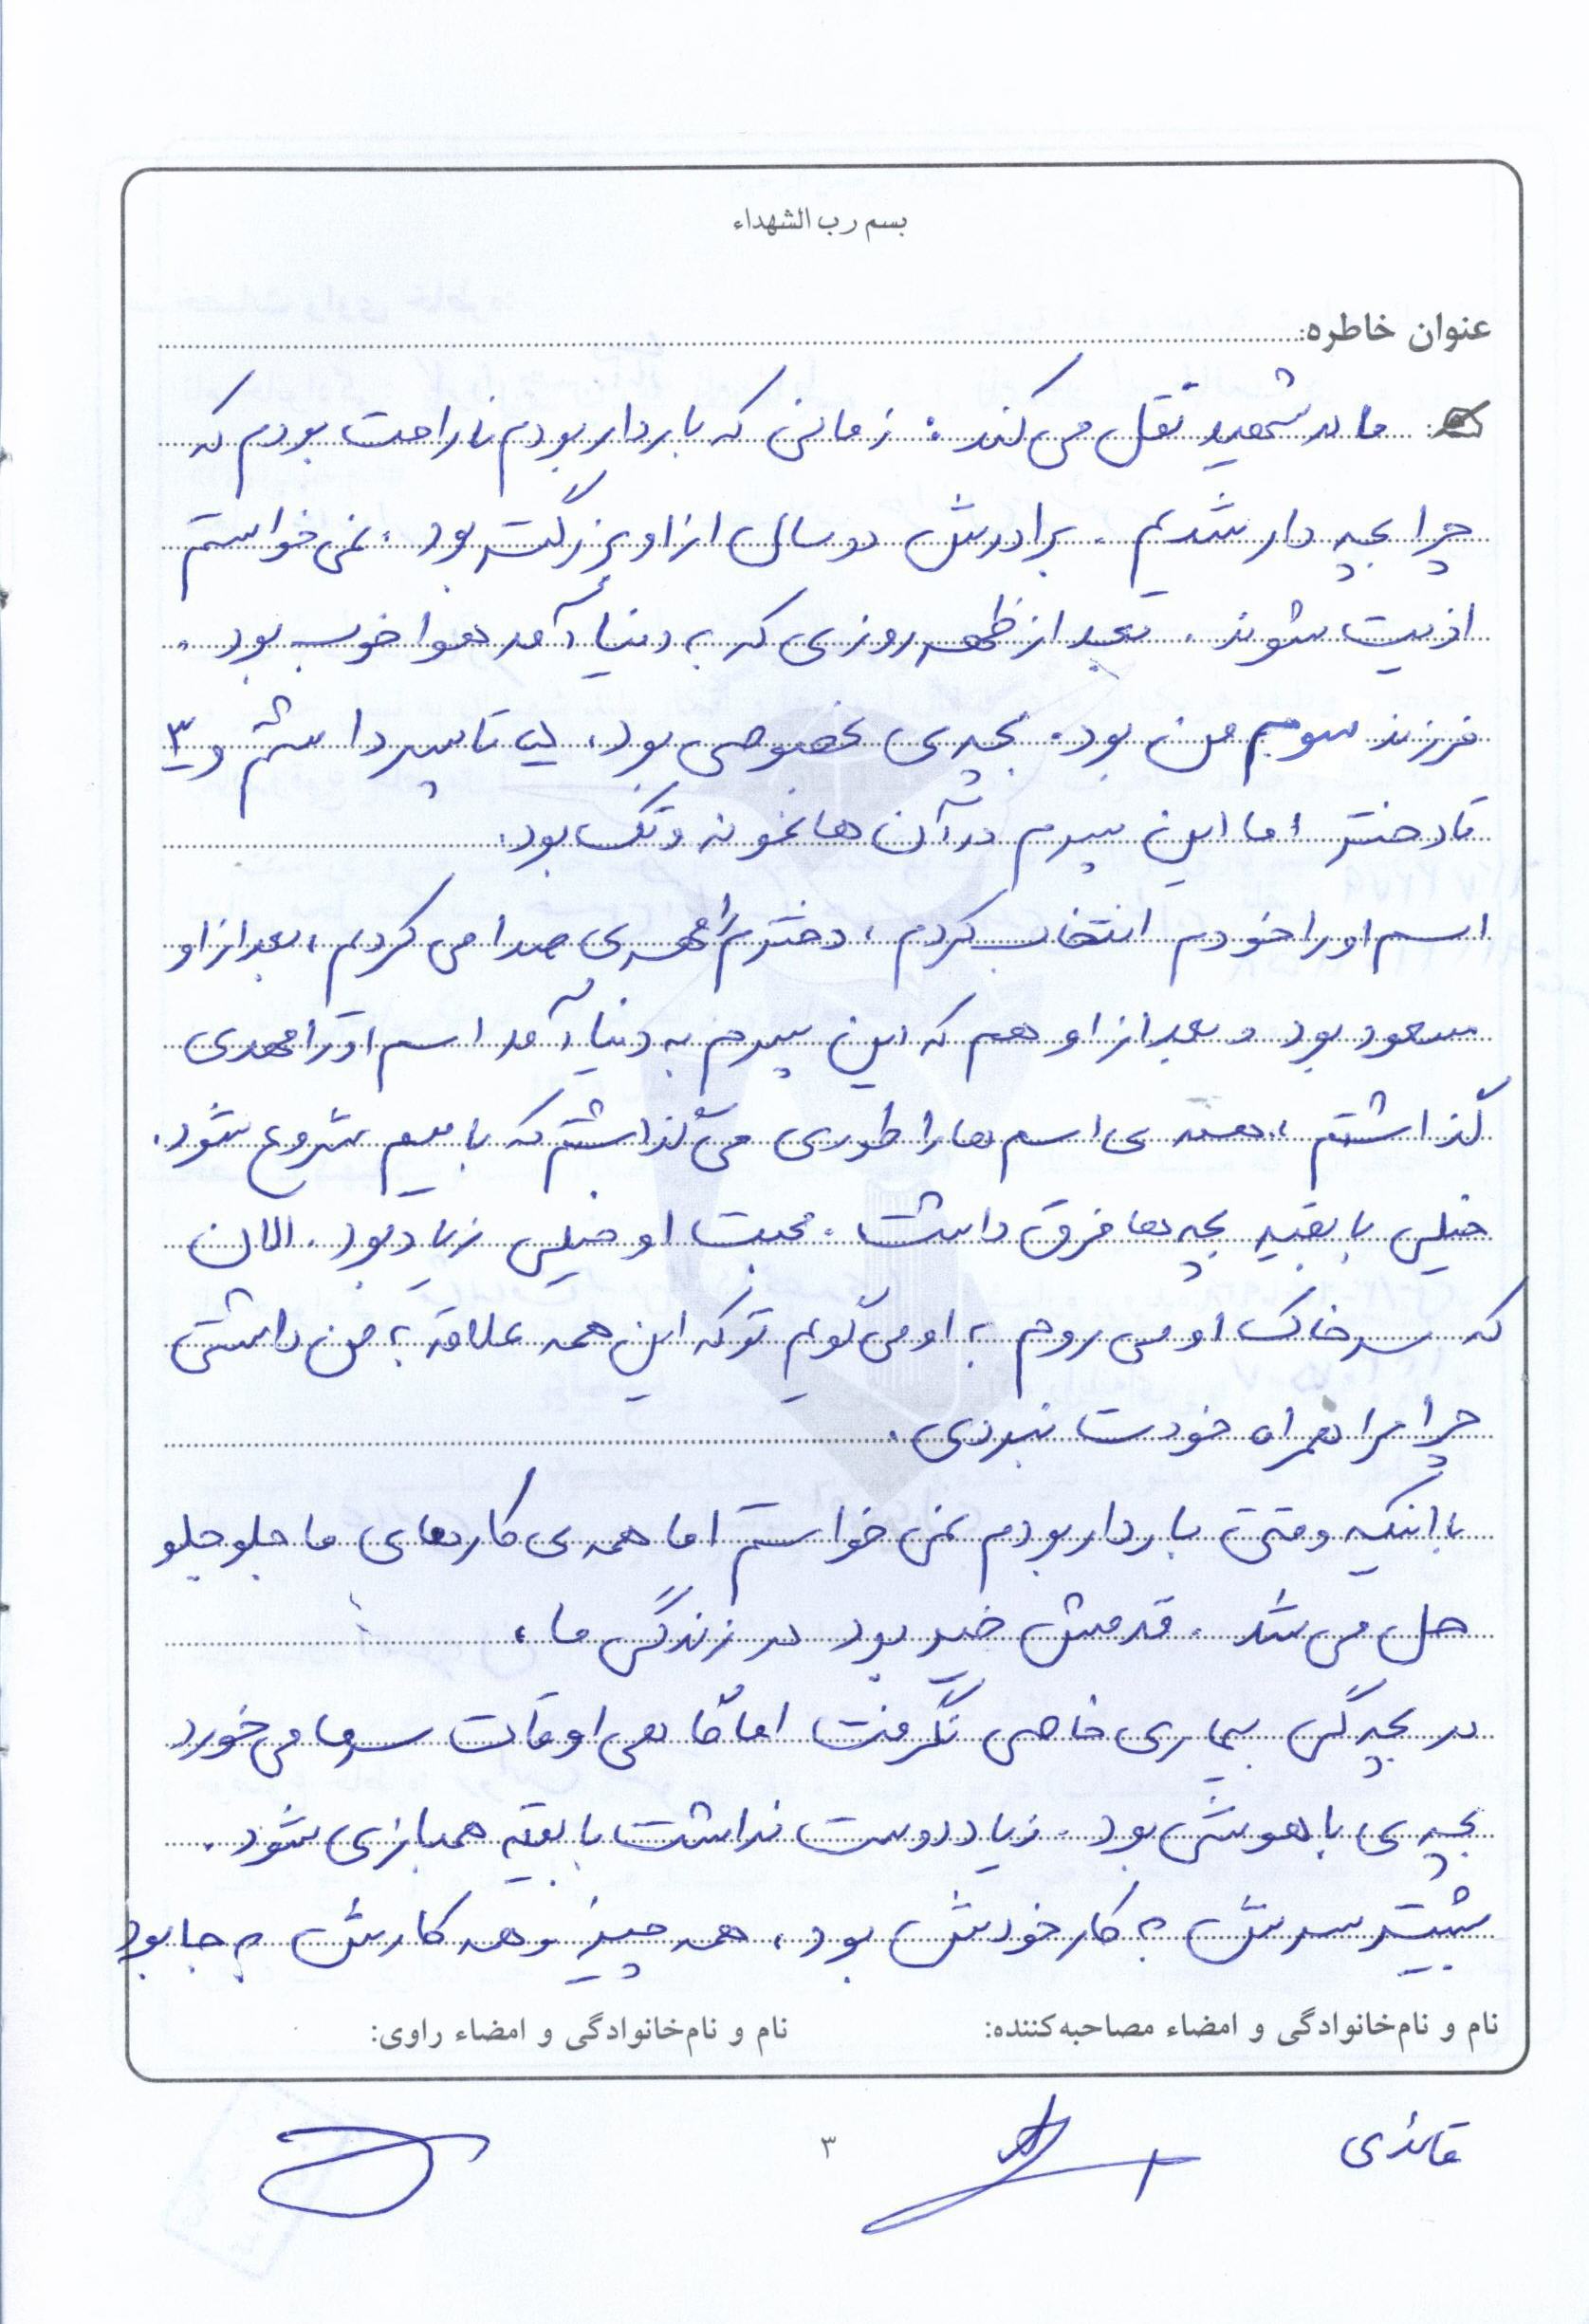 بسم رب الشهداء
عنوان خاطره:
مادر شهید نقل می کند: زمانی که باردار بودم ناراحت بودم که
چرا بچه دار شدیم. برادرش دو سال از او بزرگتر بود. نمی خواستم
اذیت شوند. بعد از ظهر روزی که به دنیا آمد هوا خوب بود.
فرزند سوم من بود. بچه ی بخصوصی بود، تا پسر داشتم و ۳
تا دختر اما این پسرم در آن ها نمونه و تک بود.
اسم او را خودم انتخاب کردم، دخترم را مهری صدا می کردم، بعد از او
مسعود بود و بعد از او هم که این پسرم به دنیا آمد اسم او را مهدی
گذاشتم، همه ی اسم ها را طوری می گذاشتم که با میم شروع شود.
خیلی با بقیه بچه ها فرق داشت. محبت او خیلی زیاد بود. الان
که سر خاک او می روم به او می گویم تو که این همه علاقه به من داشتی
چرا مرا همراه خودت نبردی.
با اینکه وقتی باردار بودم نمی خواستم اما همه ی کارهای ما جلو جلو
حل می شد. قدمش خیر بود در زندگی ما،
در بچگی بیماری خاصی نگرفت اما گاهی اوقات سرما می خورد
بچه ی باهوشی بود. زیاد دوست نداشت با بقیه همبازی شود.
بیشتر سرش به کار خودش بود، همه چیز و همه کارش به جا بود
نام و نام‌خانوادگی و امضاء مصاحبه‌کننده:
نام و نام‌خانوادگی و امضاء راوی:
قائدی
۳